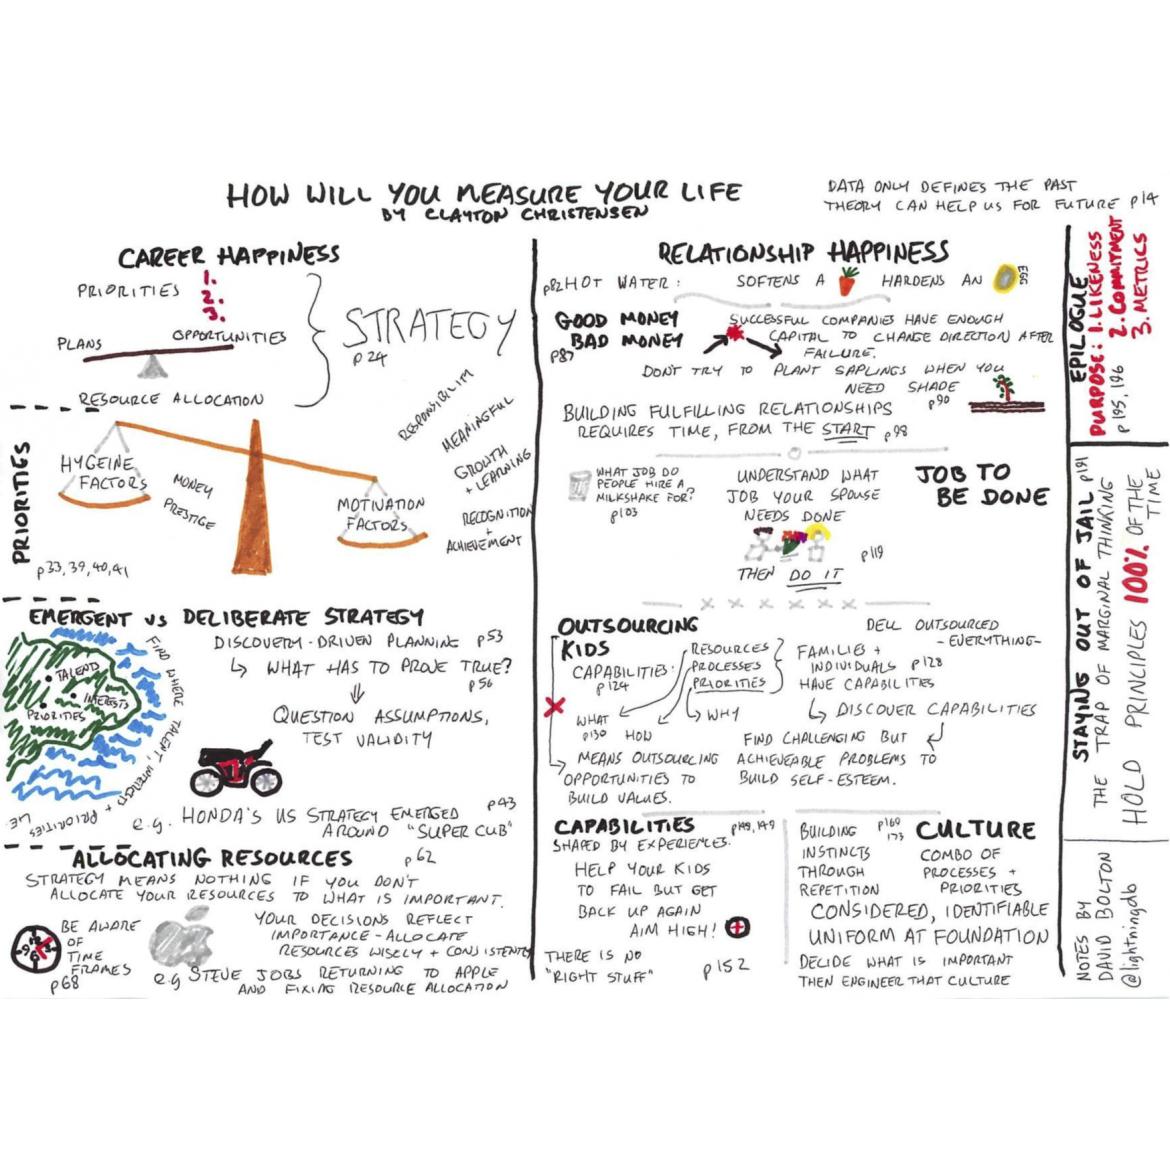 HOW WILL YOU MEASURE YOUR LIFE
BY CLAYTON CHRISTENSEN
DATA ONLY DEFINES THE PAST
THEORY CAN HELP US FOR FUTURE p14
CAREER HAPPINESS
PRIORITIES
1.
2.
3.
PLANS
OPPORTUNITIES
RESOURCE ALLOCATION
STRATEGY
p24
PRIORITIES
HYGEINE
FACTORS
MONEY
PRESTIGE
MOTIVATION
FACTORS
RESPONSIBILITY
MEANINGFUL
GROWTH
+ LEARNING
RECOGNITION
+
ACHIEVEMENT
p33,39,40,41
EMERGENT vs DELIBERATE STRATEGY
DISCOVERY-DRIVEN PLANNING p53
WHAT HAS TO PROVE TRUE?
p56
QUESTION ASSUMPTIONS,
TEST VALIDITY
TALENTS
INTERESTS
PRIORITIES
FIND WHERE TALENT, INTERESTS + PRIORITIES LIE.
e.g. HONDA'S US STRATEGY EMERGED p43
AROUND "SUPER CUB"
ALLOCATING RESOURCES p62
STRATEGY MEANS NOTHING IF YOU DON'T
ALLOCATE YOUR RESOURCES TO WHAT IS IMPORTANT.
BE AWARE
OF
TIME
FRAMES
p68
12
3
6
9
YOUR DECISIONS REFLECT
IMPORTANCE-ALLOCATE
RESOURCES WISELY + CONSISTENTLY
e.g STEVE JOBS RETURNING TO APPLE
AND FIXING RESOURCE ALLOCATION
RELATIONSHIP HAPPINESS
p82 HOT WATER: SOFTENS A HARDENS AN EGG
GOOD MONEY
BAD MONEY
p87
SUCCESSFUL COMPANIES HAVE ENOUGH
CAPITAL TO CHANGE DIRECTION AFTER
FAILURE.
DON'T TRY TO PLANT SAPLINGS WHEN YOU
NEED SHADE
p90
BUILDING FULFILLING RELATIONSHIPS
REQUIRES TIME, FROM THE START p98
WHAT JOB DO
PEOPLE HIRE A
MILKSHAKE FOR?
p103
UNDERSTAND WHAT
JOB YOUR SPOUSE
NEEDS DONE
JOB TO
BE DONE
p119
THEN DO IT
OUTSOURCING
KIDS
CAPABILITIES:
p124
RESOURCES
PROCESSES
PRIORITIES
WHAT
p130
HOW
WHY
MEANS OUTSOURCING
OPPORTUNITIES TO
BUILD VALUES.
DELL OUTSOURCED
-EVERYTHING-
FAMILIES +
INDIVIDUALS p128
HAVE CAPABILITIES
DISCOVER CAPABILITIES
FIND CHALLENGING BUT
ACHIEVEABLE PROBLEMS TO
BUILD SELF-ESTEEM.
CAPABILITIES p148,149
SHAPED BY EXPERIENCES.
HELP YOUR KIDS
TO FAIL BUT GET
BACK UP AGAIN
AIM HIGH!
THERE IS NO
"RIGHT STUFF"
p152
BUILDING
INSTINCTS
THROUGH
REPETITION
p160
173
CULTURE
COMBO OF
PROCESSES +
PRIORITIES
CONSIDERED, IDENTIFIABLE
UNIFORM AT FOUNDATION
DECIDE WHAT IS IMPORTANT
THEN ENGINEER THAT CULTURE
EPILOGUE
PURPOSE: 1. LIKENESS
2. COMMITMENT
3. METRICS
p195, 196
STAYING OUT OF JAIL p191
THE TRAP OF MARGINAL THINKING
HOLD PRINCIPLES 100% OF THE
TIME
NOTES BY
DAVID BOLTON
@lightningdb